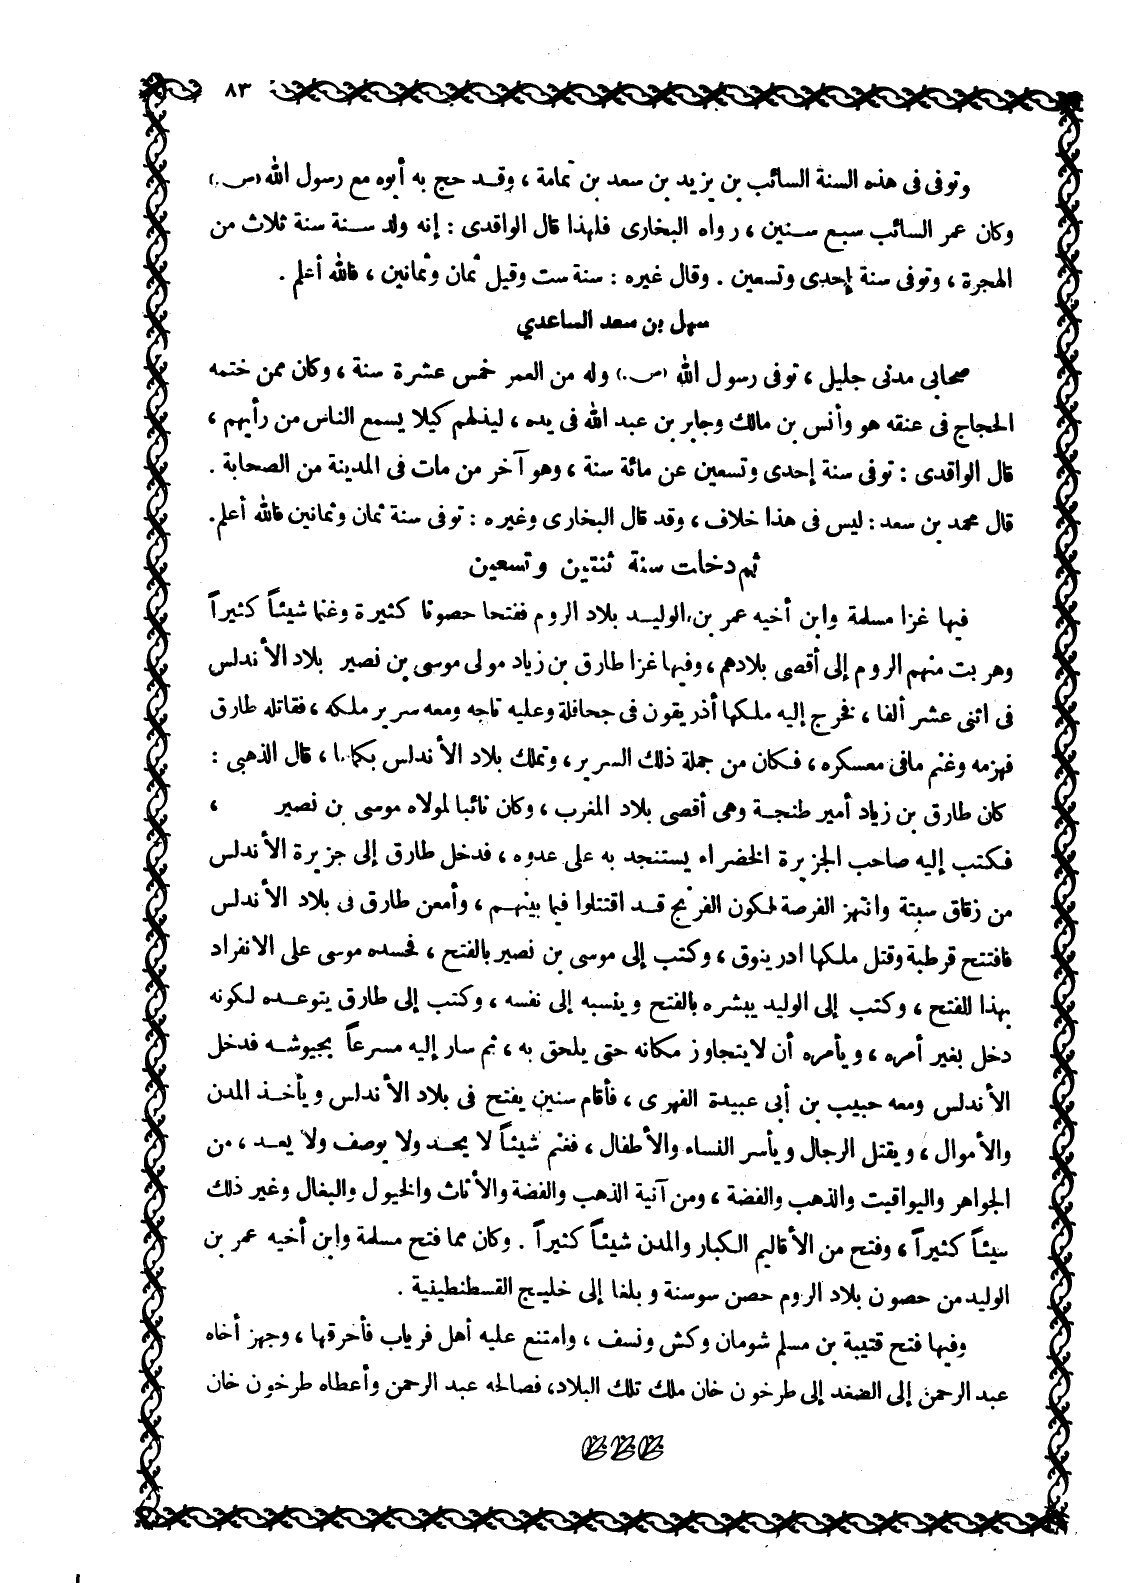 ٨٣
وتوفى فى هذه السنة السائب بن يزيد بن سعد بن تمامة ، وقد حج به أبوه مع رسول الله (ص.)
وكان عمر السائب سبع سنين ، رواه البخارى فلهذا قال الواقدى : إنه ولد سنة سنة ثلاث من
الهجرة ، وتوفى سنة إحدى وتسعين . وقال غيره : سنة ست وقيل ثمان وثمانين ، فالله أعلم .
سهل بن سعد الساعدي
صحابى مدنى جليل ، توفى رسول الله (ص.) وله من العمر خمس عشرة سنة ، وكان ممن ختمه
الحجاج فى عنقه هو وأنس بن مالك وجابر بن عبد الله فى يده ، ليذلهم كيلا يسمع الناس من رأيهم ،
قال الواقدى : توفى سنة إحدى وتسعين عن مائة سنة ، وهو آخر من مات فى المدينة من الصحابة .
قال محمد بن سعد : ليس فى هذا خلاف ، وقد قال البخارى وغيره : توفى سنة ثمان وثمانين فالله أعلم .
ثم دخلت سنة ثنتين وتسعين
فيها غزا مسلمة وابن أخيه عمر بن الوليد بلاد الروم ففتحا حصونا كثيرة وغنما شيئاً كثيراً
وهربت منهم الروم إلى أقصى بلادهم ، وفيها غزا طارق بن زياد مولى موسى بن نصير بلاد الأندلس
فى اثنى عشر ألفا ، فخرج إليه ملكها أذريقون فى جحافلة وعليه تاجه ومعه سرير ملكه ، فقاتله طارق
فهزمه وغنم مافى معسكره ، فكان من جملة ذلك السرير ، وتملك بلاد الأندلس بكمالها ، قال الذهبى :
كان طارق بن زياد أمير طنجة وهى أقصى بلاد المغرب ، وكان نائبا لمولاه موسى بن نصير ،
فكتب إليه صاحب الجزيرة الخضراء يستنجد به على عدوه ، فدخل طارق إلى جزيرة الأندلس
من زقاق سبتة وانتهز الفرصة لكون الفرنج قد اقتتلوا فيما بينهم ، وأمعن طارق فى بلاد الأندلس
فافتتح قرطبة وقتل ملكها ادرينوق ، وكتب إلى موسى بن نصير بالفتح ، فحسده موسى على الانفراد
بهذا الفتح ، وكتب إلى الوليد يبشره بالفتح وينسبه إلى نفسه ، وكتب إلى طارق يتوعده لكونه
دخل بغير أمره ، ويأمره أن لايتجاوز مكانه حتى يلحق به ، ثم سار إليه مسرعاً بجيوشه فدخل
الأندلس ومعه حبيب بن أبى عبيدة الفهرى ، فأقام سنين يفتح فى بلاد الأندلس ويأخذ المدن
والأموال ، ويقتل الرجال ويأسر النساء والأطفال ، فغنم شيئاً لا يحد ولا يوصف ولا يعد ، من
الجواهر واليواقيت والذهب والفضة ، ومن آنية الذهب والفضة والأثاث والخيول والبغال وغير ذلك
شيئاً كثيراً ، وفتح من الأقاليم الكبار والمدن شيئاً كثيراً . وكان مما فتح مسلمة وابن أخيه عمر بن
الوليد من حصون بلاد الروم حصن سوسنة وبلغا إلى خليج القسطنطينية .
وفيها فتح قتيبة بن مسلم شومان وكش ونسف ، وامتنع عليه أهل فرياب فأحرقها ، وجهز أخاه
عبد الرحمن إلى الصغد إلى طرخون خان ملك تلك البلاد ، فصالحه عبد الرحمن وأعطاه طرخون خان